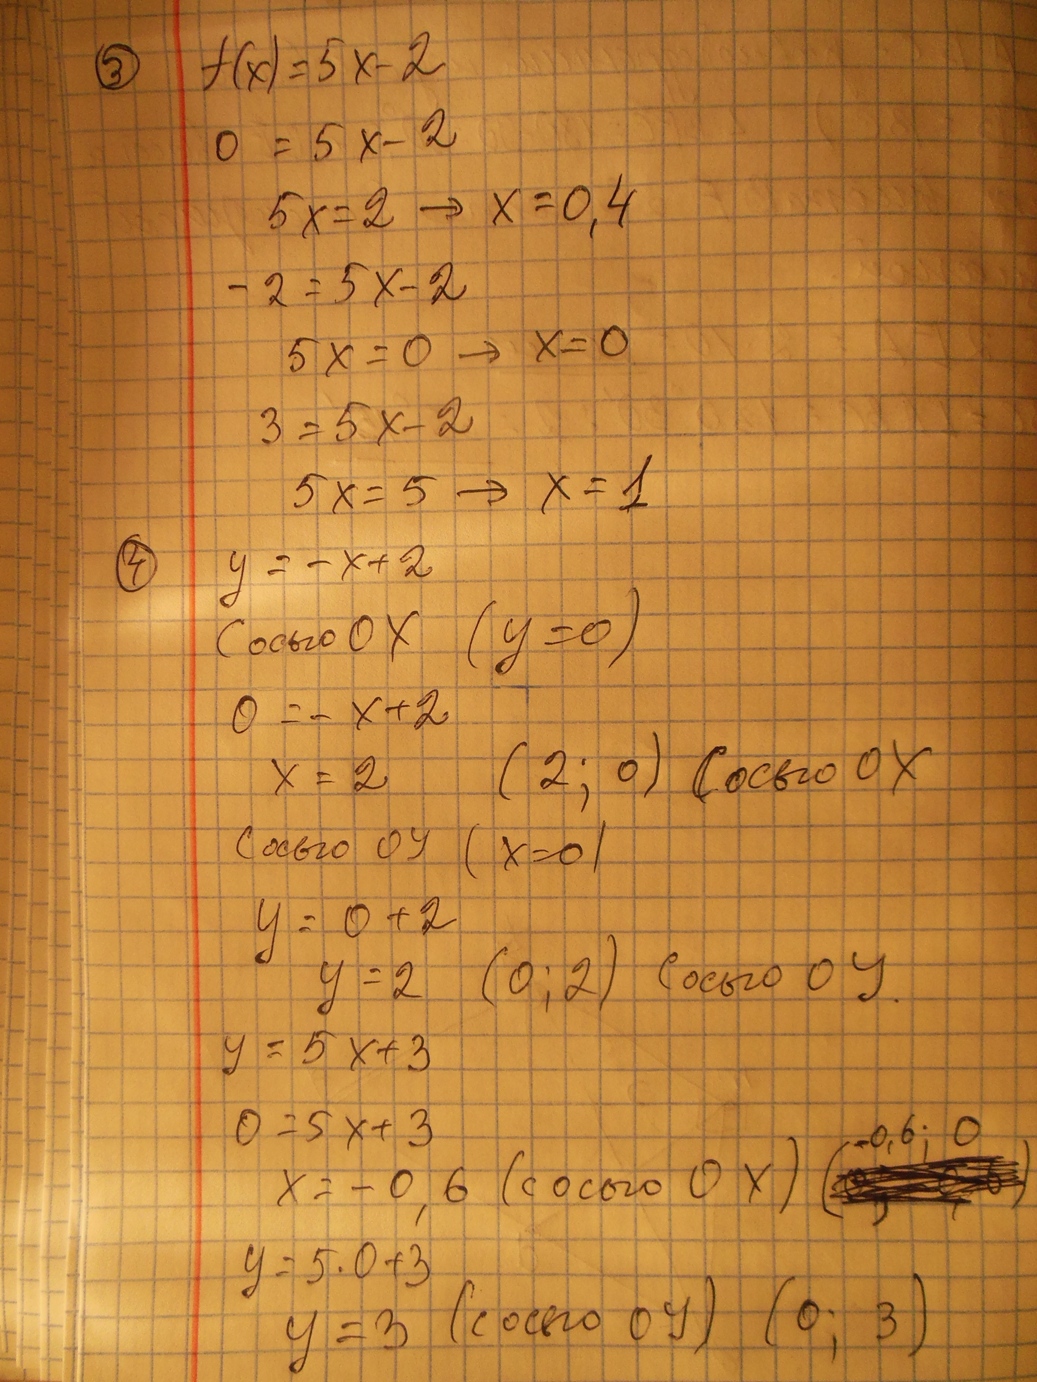 ③ f(x)=5x-2
0 = 5x-2
5x=2 → x=0,4
-2=5x-2
5x=0 → x=0
3=5x-2
5x=5 → x=1
④ y=-x+2
С осью OX (y=0)
0=-x+2
x=2 (2; 0) С осью OX
С осью OY (x=0)
y=0+2
y=2 (0; 2) С осью OY.
y=5x+3
0=5x+3
-0,6; 0
x=-0,6 (с осью OX) ( )
y=5·0+3
y=3 (с осью OY) (0; 3)